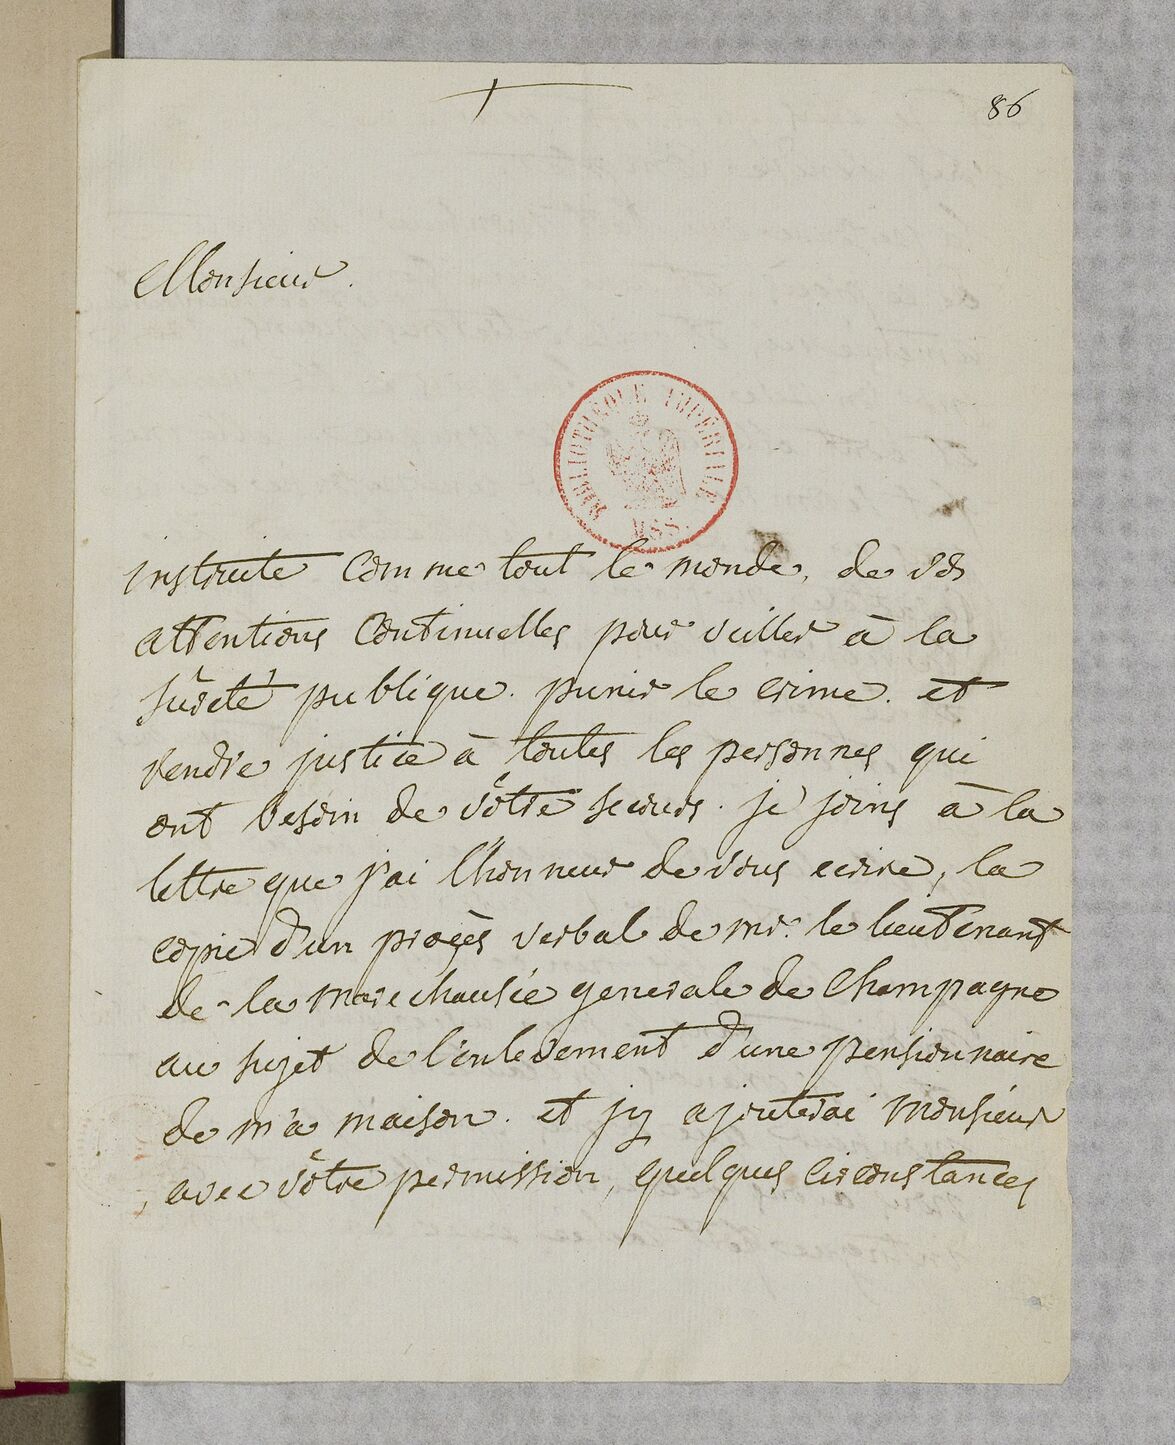 86
Monsieur.
BIBLIOTHEQUE IMPERIALE
MSS.
instruite comme tout le monde, de vos
attentions continuelles pour veiller à la
sûreté publique. punir le crime. et
rendre justice à toutes les personnes qui
ont besoin de vôtre secours. je joins à la
lettre que j'ai l'honneur de vous ecrire, la
copie d'un procès verbal de mr. le lieutenant
de la marechaussée generale de Champagne
au sujet de l'enlevement d'une pensionnaire
de ma maison. et j'y ajouterai monsieur
avec vôtre permission, quelques circonstances